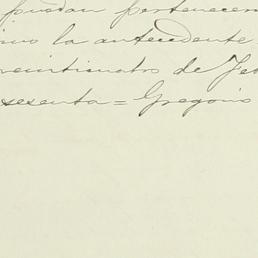 puedan pertenecer
la antecedente
veinticuatro de Fe
sesenta = Gregorio